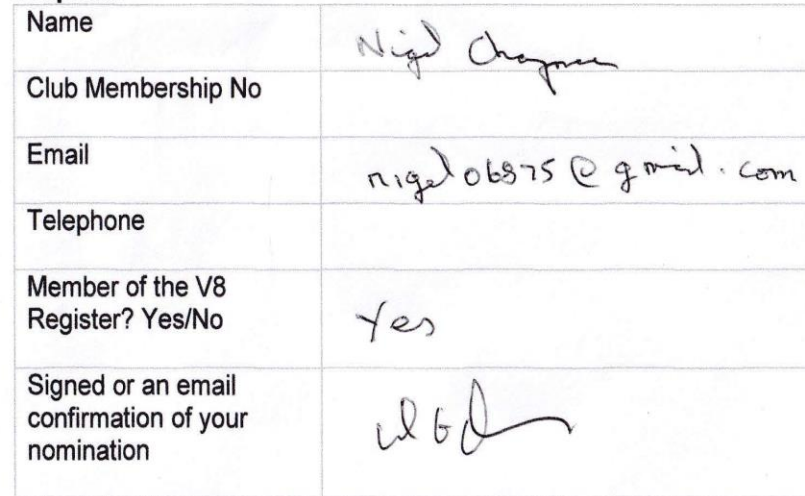 Name
Nigel Chapman
Club Membership No
Email
nigel06875@gmail.com
Telephone
Member of the V8
Register? Yes/No
Yes
Signed or an email
confirmation of your
nomination